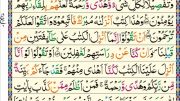 وَتَفْصِيلًا لِّكُلِّ شَيْءٍ وَهُدًى وَرَحْمَةً لَّعَلَّهُم بِلِقَآءِ رَبِّهِمْ
يُؤْمِنُونَ وَهَٰذَا كِتَٰبٌ أَنزَلْنَٰهُ مُبَارَكٌ فَٱتَّبِعُوهُ وَٱتَّقُوا۟ لَعَلَّكُمْ
تُرْحَمُونَ أَن تَقُولُوٓا۟ إِنَّمَآ أُنزِلَ ٱلْكِتَٰبُ عَلَىٰ طَآئِفَتَيْنِ مِن
قَبْلِنَا وَإِن كُنَّا عَن دِرَاسَتِهِمْ لَغَٰفِلِينَ أَوْ تَقُولُوا۟ لَوْ أَنَّآ
أُنزِلَ عَلَيْنَا ٱلْكِتَٰبُ لَكُنَّآ أَهْدَىٰ مِنْهُمْ فَقَدْ جَآءَكُم
بَيِّنَةٌ مِّن رَّبِّكُمْ وَهُدًى وَرَحْمَةٌ فَمَنْ أَظْلَمُ مِمَّن